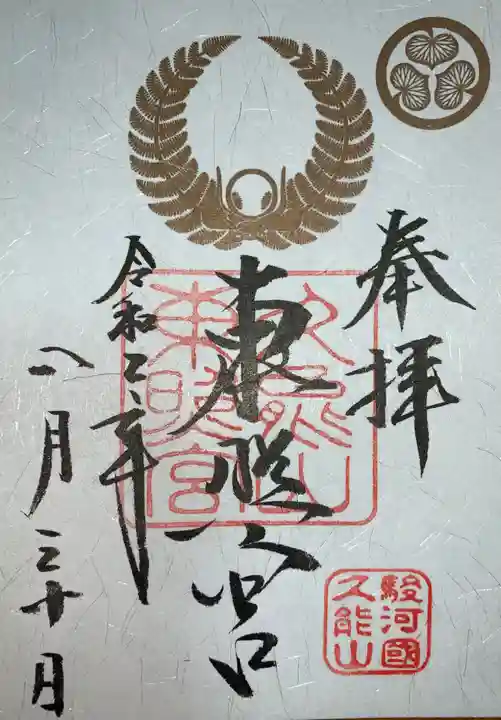 奉拝
東照宮
令和二年
八月三十日
久能山
東照宮
駿河國
久能山